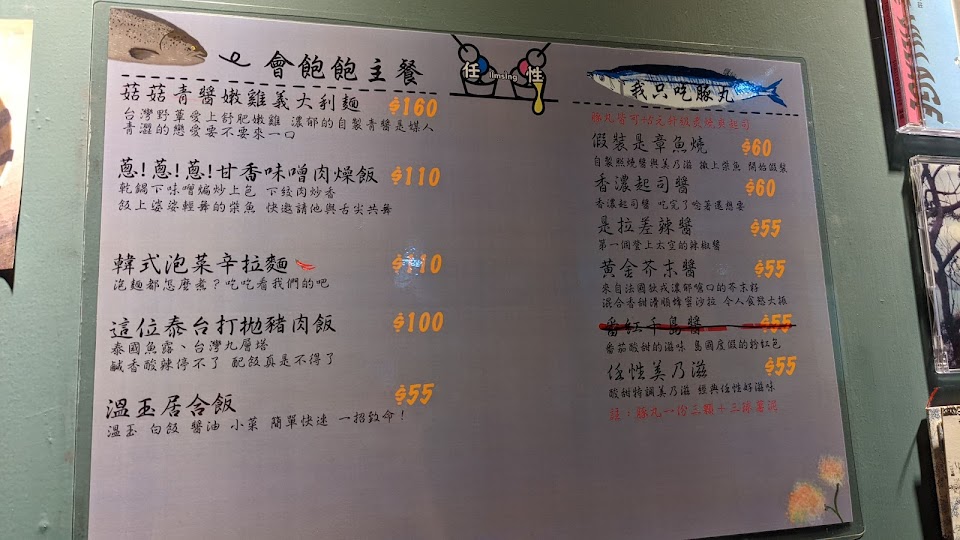 會飽飽主餐
菇菇青醬嫩雞義大利麵 $160
台灣野蕈愛上舒肥嫩雞 濃郁的自製青醬是媒人
青澀的戀愛要不要來一口
蔥!蔥!蔥!甘香味噌肉燥飯 $110
乾鍋下味噌煸炒上色 下絞肉炒香
飯上婆娑輕舞的柴魚 快邀請他與舌尖共舞
韓式泡菜辛拉麵 $110
泡麵都怎麼煮?吃吃看我們的吧
這位泰台打拋豬肉飯 $100
泰國魚露、台灣九層塔
鹹香酸辣停不了 配飯真是不得了
溫玉居合飯 $55
溫玉 白飯 醬油 小菜 簡單快速 一招致命!
任 limsing 性
我只吃豚丸
豚丸皆可加元升級炙燒爽起司
假裝是章魚燒 $60
自製照燒醬與美乃滋 撒上柴魚 開始假裝
香濃起司醬 $60
香濃起司醬 吃完了吮著還想要
是拉差辣醬 $55
第一個登上太空的辣椒醬
黃金芥末醬 $55
來自法國狄戎濃郁嗆口的芥末籽
混合香甜滑順蜂蜜沙拉 令人食慾大振
番紅千島醬 $55
番茄酸甜的滋味 島國度假的粉紅包
任性美乃滋 $55
酸甜特調美乃滋 經典任性好滋味
註:豚丸一份三顆+三球薯泥